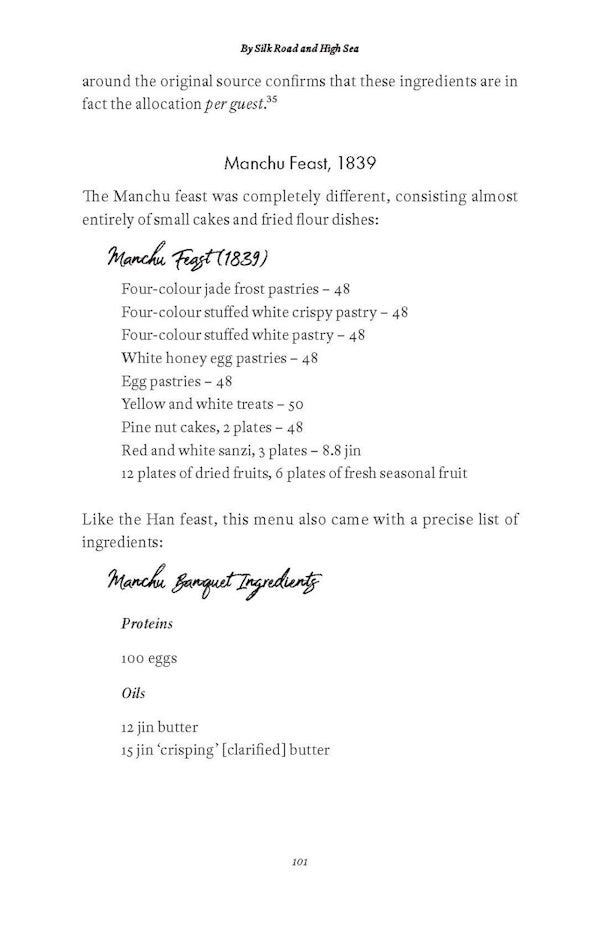 By Silk Road and High Sea
around the original source confirms that these ingredients are in
fact the allocation per guest.35
Manchu Feast, 1839
The Manchu feast was completely different, consisting almost
entirely of small cakes and fried flour dishes:
Manchu Feast (1839)
Four-colour jade frost pastries – 48
Four-colour stuffed white crispy pastry – 48
Four-colour stuffed white pastry – 48
White honey egg pastries – 48
Egg pastries – 48
Yellow and white treats – 50
Pine nut cakes, 2 plates – 48
Red and white sanzi, 3 plates – 8.8 jin
12 plates of dried fruits, 6 plates of fresh seasonal fruit
Like the Han feast, this menu also came with a precise list of
ingredients:
Manchu Banquet Ingredients
Proteins
100 eggs
Oils
12 jin butter
15 jin ‘crisping’ [clarified] butter
101